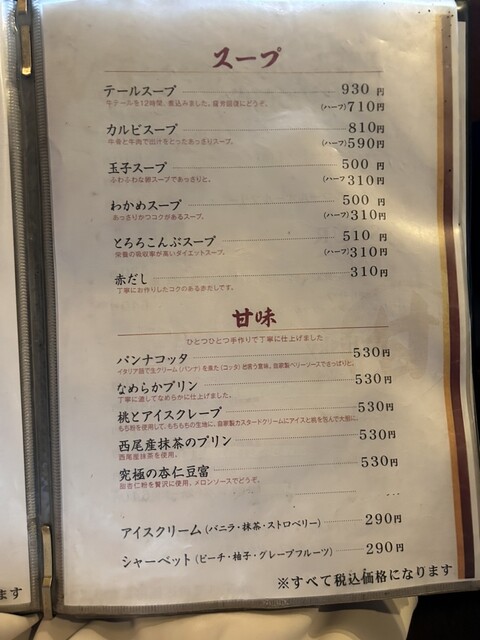 スープ
テールスープ 930円
牛テールを12時間、煮込みました。疲労回復にどうぞ。 (ハーフ)710円
カルビスープ 810円
牛骨と牛肉で出汁をとったあっさりスープ。 (ハーフ)590円
玉子スープ 500円
ふわふわな卵スープであっさりと。 (ハーフ)310円
わかめスープ 500円
あっさりかつコクがあるスープ。 (ハーフ)310円
とろろこんぶスープ 510円
栄養の吸収率が高いダイエットスープ。 (ハーフ)310円
赤だし 310円
丁寧にお作りしたコクのあるきだしです。
甘味
ひとつひとつ手作りで丁寧に仕上げました
パンナコッタ 530円
イタリア語で生クリーム(パンナ)を煮た(コッタ)と言う意味。自家製ベリーソースでさっぱりと。
なめらかプリン 530円
丁寧に漉してなめらかに仕上げました。
桃とアイスクレープ 530円
もち粉を使用して、もちもちの生地に。自家製カスタードクリームにアイスと桃を包んで大胆に。
西尾産抹茶のプリン 530円
西尾産抹茶を使用。
究極の杏仁豆富 530円
杏仁粉を贅沢に使用。メロンソースでどうぞ。
アイスクリーム(バニラ・抹茶・ストロベリー) 290円
シャーベット(ピーチ・柚子・グレープフルーツ) 290円
※すべて税込価格になります
ます